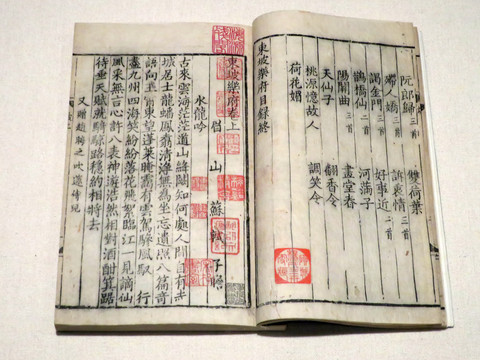 阮郎歸 三首 雙荷葉
殢人嬌 三首 訴衷情 三首
謁金門 三首 好事近 二首
鵲橋仙 二首 河滿子
陽關曲 三首 畫堂春
天仙子 翻香令
桃源憶故人 調笑令
荷花媚
東坡樂府目錄終
東坡樂府卷上
眉山蘇軾子瞻
水龍吟
古來雲海茫茫道山絳闕知何處人間自有赤
城居士龍蟠鳳翥清淨無為坐忘遺照八篇奇
語向玉霄東望蓬萊晻靄有雲駕驂風馭 行
盡九州四海笑紛紛落花飛絮臨江一見謫仙
風采無言心許八表神遊浩然相對酒酣箕踞
待垂天賦就騎鯨路穩約相將去
又 贈趙晦之吹笛侍兒